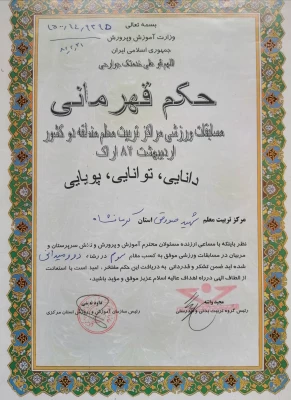 بسمه تعالی
وزارت آموزش و پرورش
جمهوری اسلامی ایران
اللهم قو علی خدمتک جوارحی
حکم قهرمانی
مسابقات ورزشی مراکز تربیت معلم منطقه دو کشور
اردیبهشت ۸۲ اراک
دانایی، توانایی، پویایی
مرکز تربیت معلم شهید صدوقی استان کرمانشاه
نظر باینکه با مساعی ارزنده مسئولان محترم آموزش و پرورش و تلاش سرپرستان و
مربیان در مسابقات ورزشی موفق به کسب مقام سوم در رشته دو و میدانی
شده اید ضمن تشکر و قدردانی به دریافت این حکم مفتخر، امید است با استعانت
از الطاف الهی در راه اهداف عالیه اسلام عزیز موفق و مؤید باشید.
رئیس گروه تربیت بدنی و تندرستی
رئیس سازمان آموزش و پرورش استان مرکزی